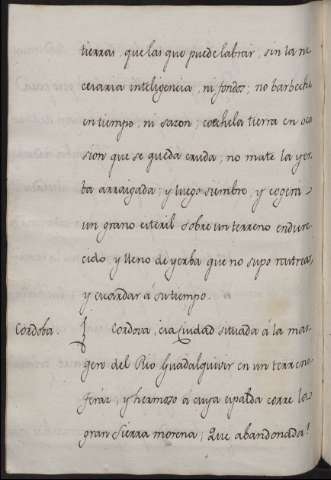 tierras, que las que puede labrar, sin la ne
cesaria inteligencia, ni fondos; no barbecha
en tiempo, ni sazon; coechela tierra en oca
sion que se queda cruda; no mate la yer
ba arraigada; y luego siembre, y cogerá
un grano esteril sobre un terreno endure
cido, y lleno de yerba que no supo rastrear,
y escardar á su tiempo.
Cordoba. Cordova, esa Ciudad situada á la mar
gen del Rio Guadalquivir en un terreno
feráz, y hermoso á cuya espalda corre la
gran Sierra morena; Que abandonada!